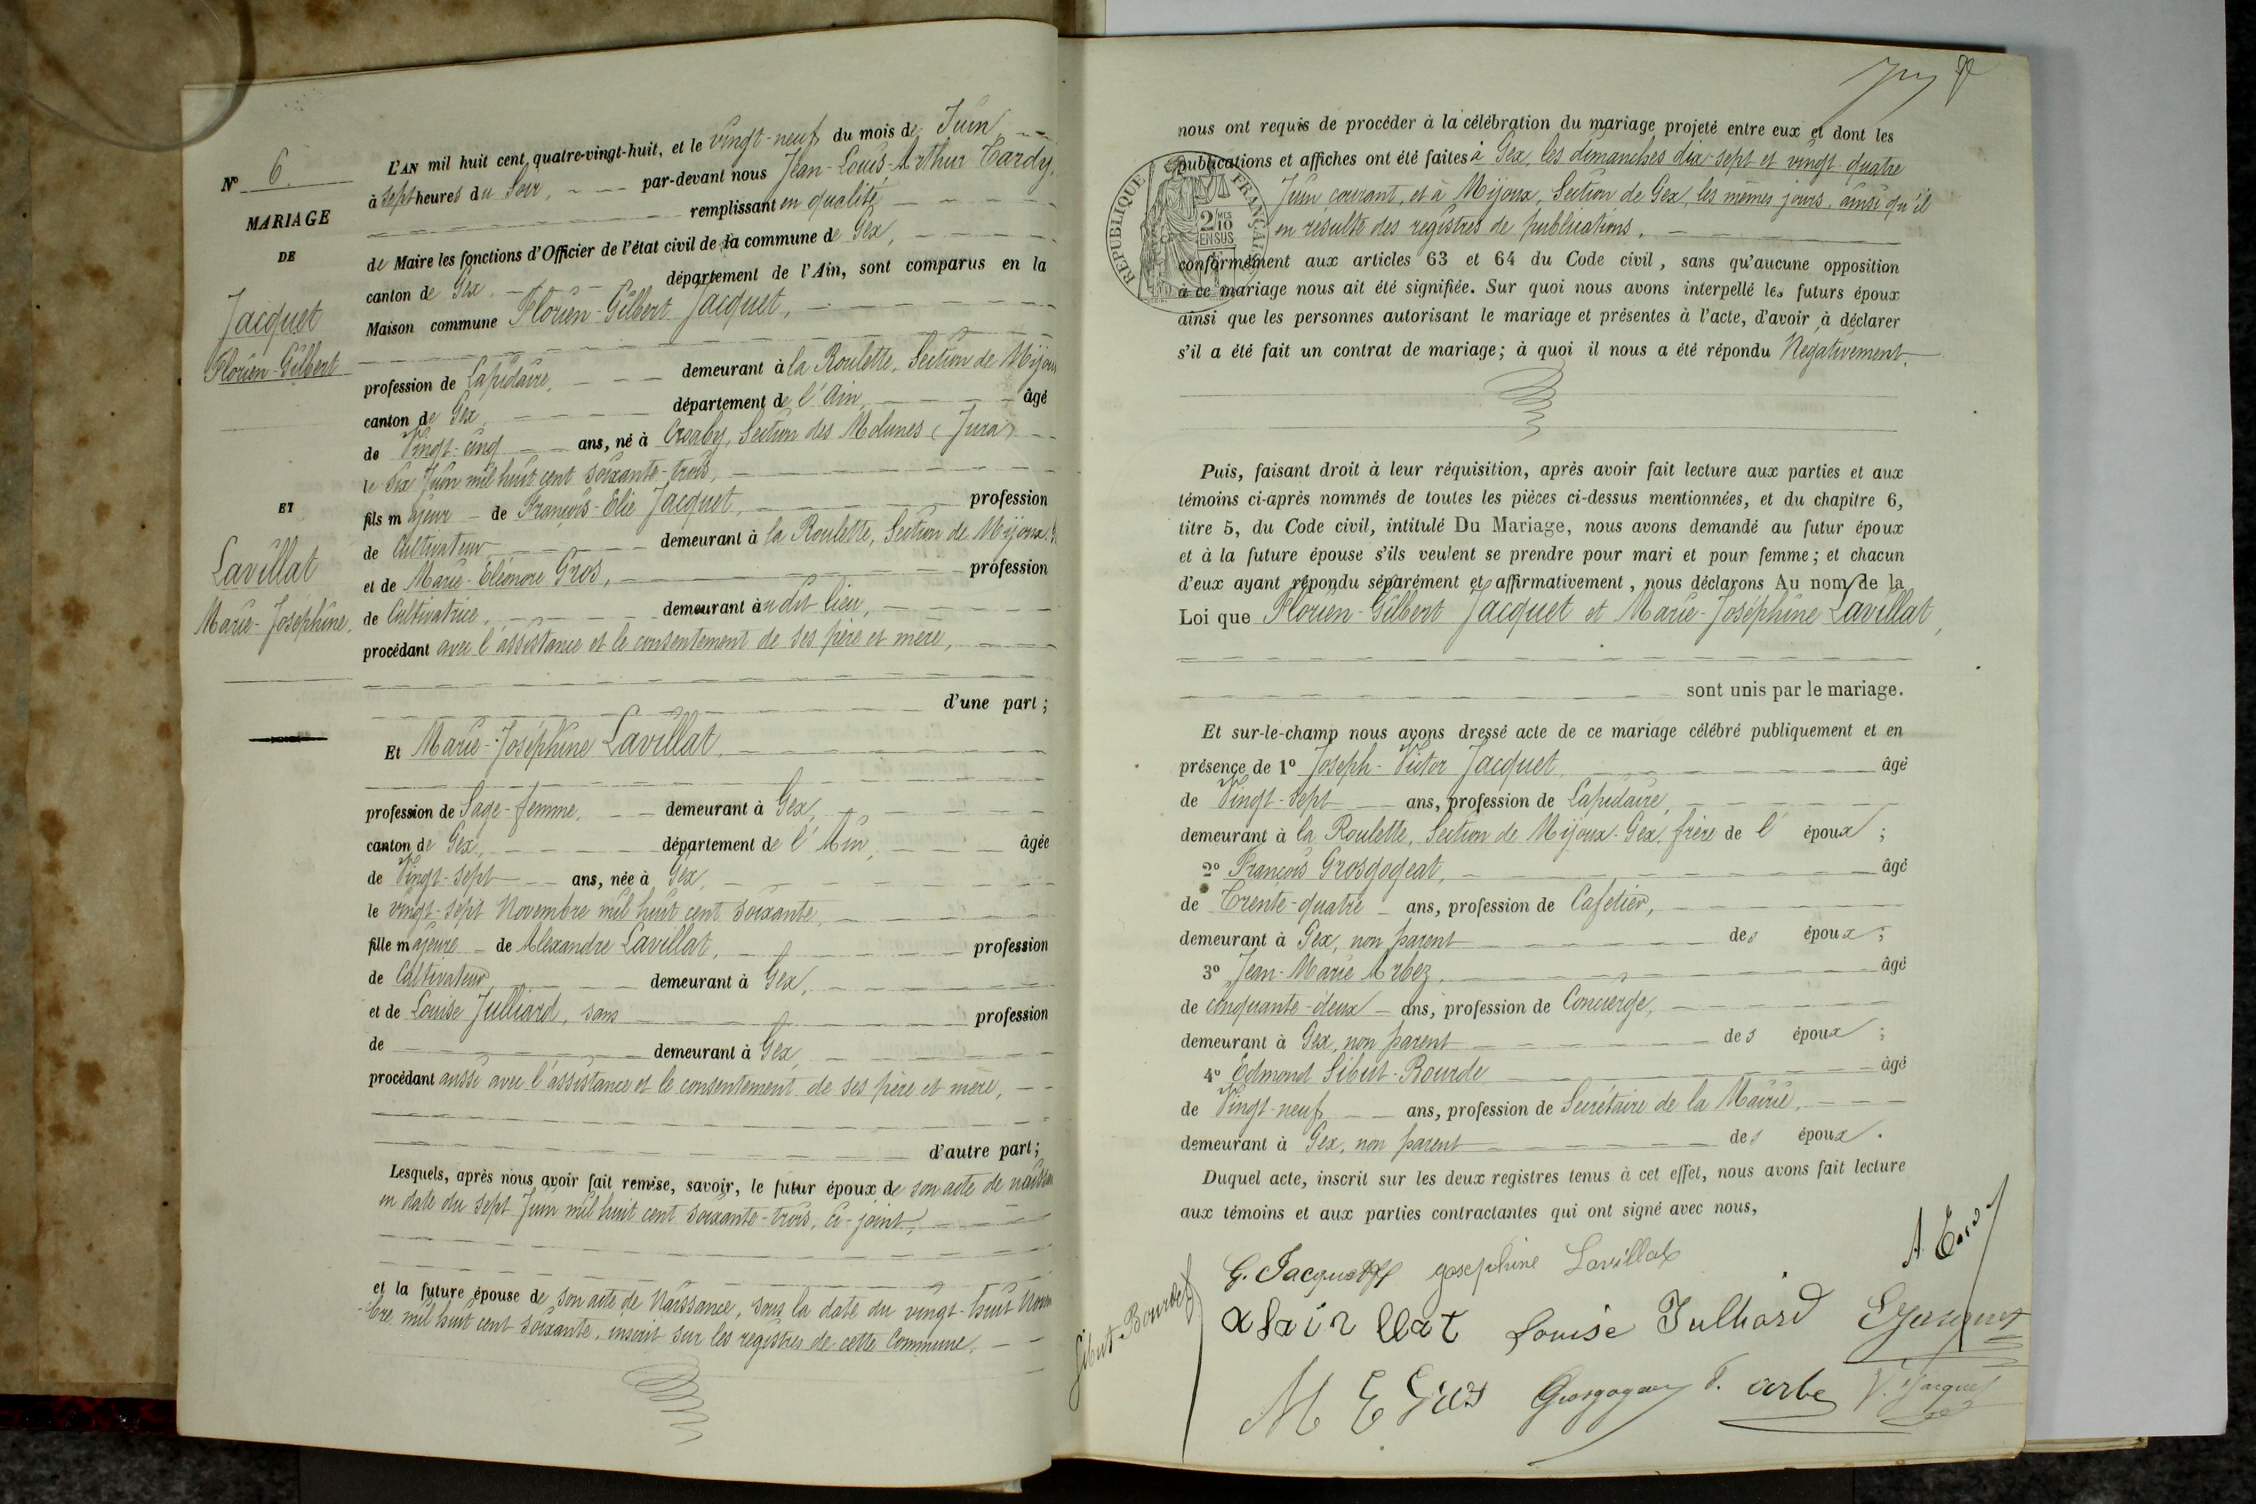 N° 6.
MARIAGE
DE
Jacquet
Florien-Gilbert
ET
Lavillat
Marie-Joséphine.
L'AN mil huit cent quatre-vingt-huit, et le vingt-neuf du mois de Juin
à sept heures du Soir, par-devant nous Jean-Louis-Arthur Tardy,
remplissant en qualité
de Maire les fonctions d'Officier de l'état civil de la commune de Gex,
canton de Gex, département de l'Ain, sont comparus en la
Maison commune Florien-Gilbert Jacquet,
profession de Lapidaire, demeurant à la Roulette, Section de Mijoux
canton de Gex, département de l'Ain, âgé
de Vingt-cinq ans, né à Section des Molunes (Jura)
le Six Juin mil huit cent soixante-trois,
fils majeur de François-Elie Jacquet, profession
de Cultivateur, demeurant à la Roulette, Section de Mijoux
et de Marie-Eléonore Gros, profession
de Cultivatrice, demeurant audit lieu,
procédant avec l'assistance et le consentement de ses père et mère,
d'une part;
Et Marie-Joséphine Lavillat,
profession de Sage-femme, demeurant à Gex,
canton de Gex, département de l'Ain, âgée
de Vingt-sept ans, née à Gex,
le vingt-sept Novembre mil huit cent soixante,
fille majeure de Alexandre Lavillat, profession
de Cultivateur, demeurant à Gex,
et de Louise Julliard, sans profession
de demeurant à Gex,
procédant aussi avec l'assistance et le consentement de ses père et mère,
d'autre part;
Lesquels, après nous avoir fait remise, savoir, le futur époux de son acte de
en date du sept Juin mil huit cent soixante-trois, ci-joint,
et la future épouse de son acte de Naissance, sous la date du vingt-huit Novem
-bre mil huit cent soixante, inscrit sur les registres de cette Commune.
nous ont requis de procéder à la célébration du mariage projeté entre eux et dont les
publications et affiches ont été faites à Gex, les dimanches dix-sept et vingt-quatre
Juin courant, et à Mijoux, Section de Gex, les mêmes jours, ainsi qu'il
en résulte des registres de publications.
RÉPUBLIQUE FRANÇAISE
2 MES
10
EN SUS
conformément aux articles 63 et 64 du Code civil, sans qu'aucune opposition
à ce mariage nous ait été signifiée. Sur quoi nous avons interpellé les futurs époux
ainsi que les personnes autorisant le mariage et présentes à l'acte, d'avoir à déclarer
s'il a été fait un contrat de mariage; à quoi il nous a été répondu Négativement.
Puis, faisant droit à leur réquisition, après avoir fait lecture aux parties et aux
témoins ci-après nommés de toutes les pièces ci-dessus mentionnées, et du chapitre 6,
titre 5, du Code civil, intitulé Du Mariage, nous avons demandé au futur époux
et à la future épouse s'ils veulent se prendre pour mari et pour femme; et chacun
d'eux ayant répondu séparément et affirmativement, nous déclarons Au nom de la
Loi que Florien-Gilbert Jacquet et Marie-Joséphine Lavillat,
sont unis par le mariage.
Et sur-le-champ nous avons dressé acte de ce mariage célébré publiquement et en
présence de 1° Joseph-Victor Jacquet, âgé
de Vingt-sept ans, profession de Lapidaire,
demeurant à la Roulette, Section de Mijoux-Gex, frère de l'époux;
2° François Grosgogeat, âgé
de Trente-quatre ans, profession de Cafetier,
demeurant à Gex, non parent des époux;
3° Jean-Marie Arbez, âgé
de cinquante-deux ans, profession de Concierge,
demeurant à Gex, non parent des époux;
4° Edmond Sibut-Bourde âgé
de Vingt-neuf ans, profession de Secrétaire de la Mairie,
demeurant à Gex, non parent des époux.
Duquel acte, inscrit sur les deux registres tenus à cet effet, nous avons fait lecture
aux témoins et aux parties contractantes qui ont signé avec nous,
G. Jacquet josephine Lavillat
Louise Julliard E Jacquet
Sibut-Bourde
M E Gros Grosgogeat arbe V. Jacquet